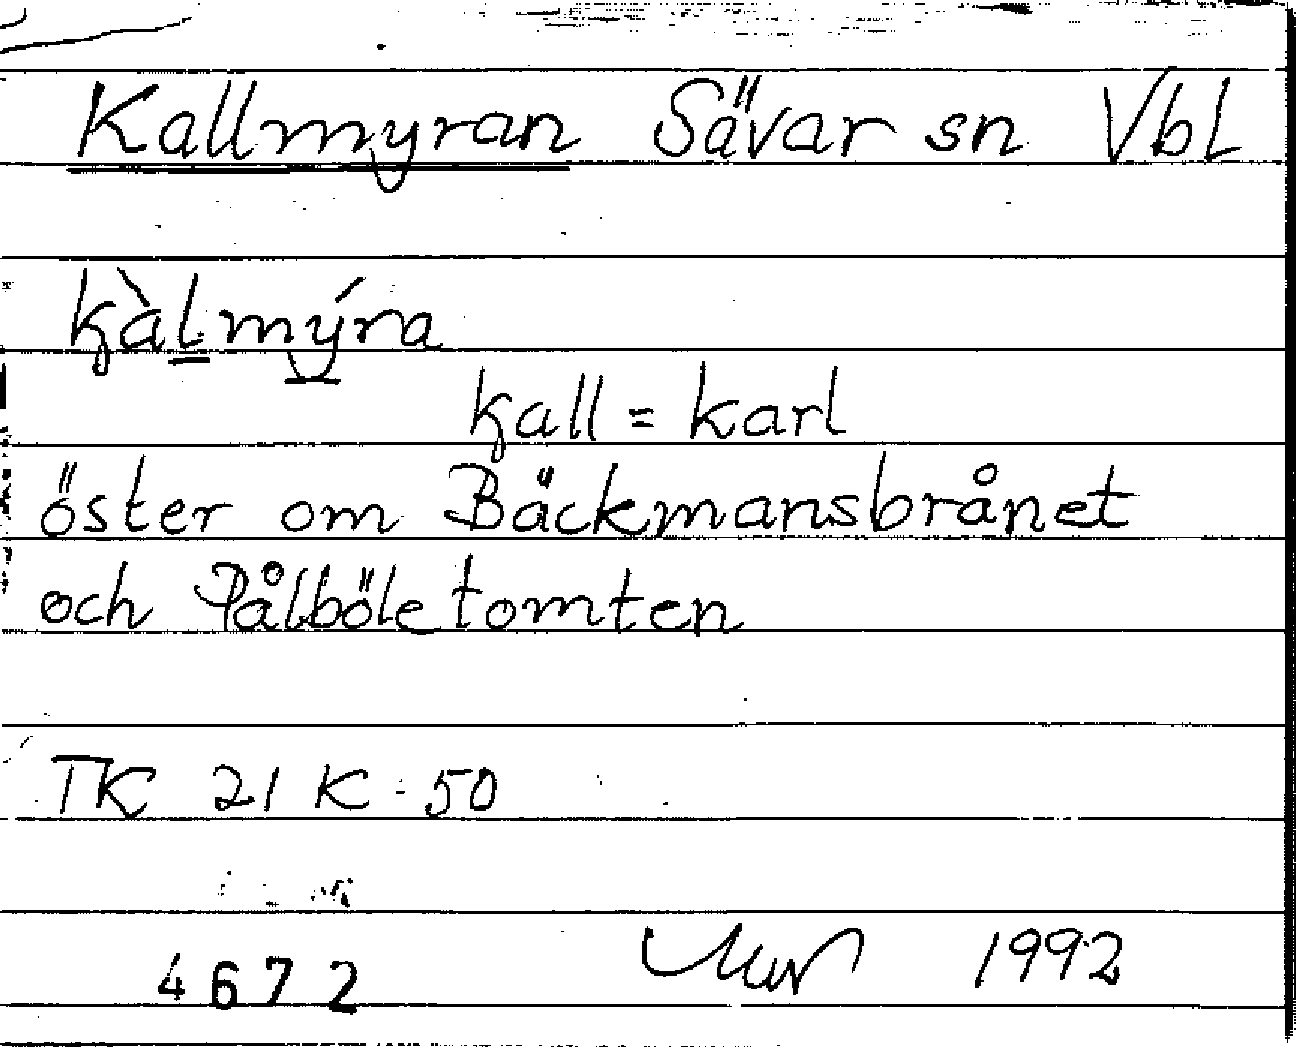 Kallmyran Sävar sn Vbl
kàlmýra
kall = karl
öster om Bäckmansbrånet
och Pålböletomten
TK 21 K - 50
1992
4672